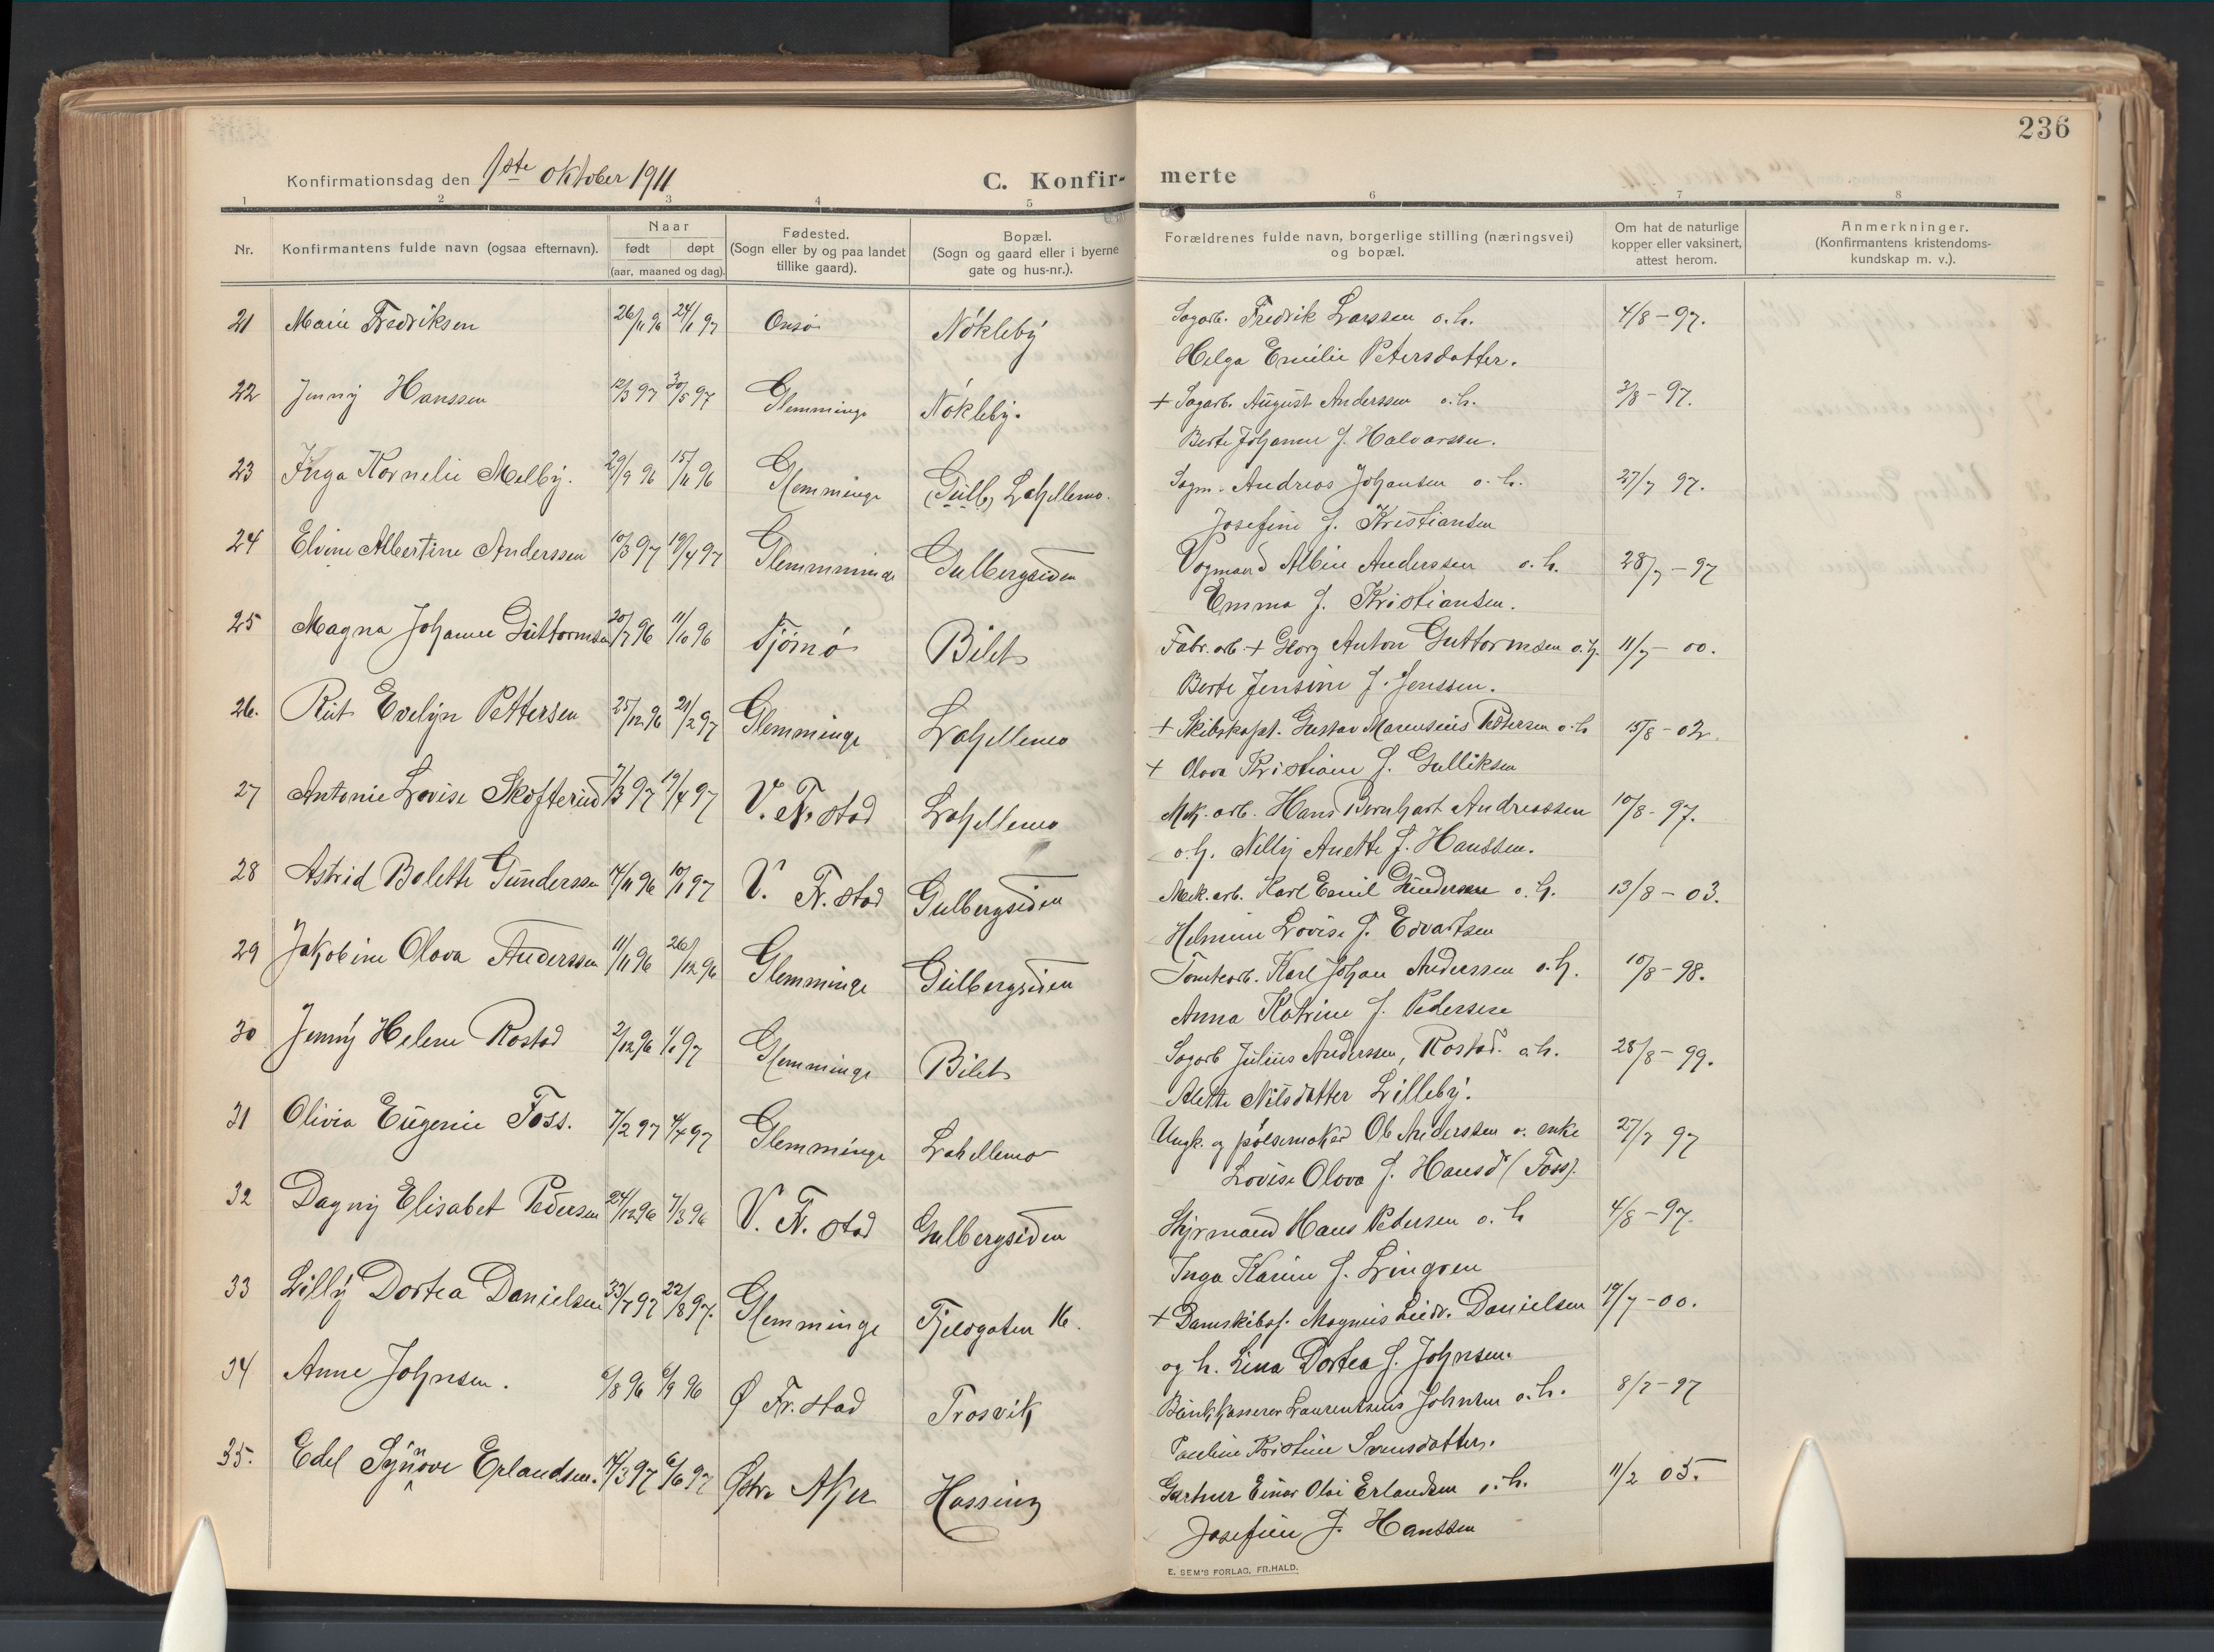 236
Konfirmationsdag den 1ste oktober 1911
C. Konfir-
merte
1 2 3 4 5 6 7 8
Nr.
Konfirmantens fulde navn (ogsaa efternavn).
Naar
født døpt
(aar, maaned og dag).
Fødested.
(Sogn eller by og paa landet
tillike gaard).
Bopæl.
(Sogn og gaard eller i byerne
gate og hus-nr.).
Forældrenes fulde navn, borgerlige stilling (næringsvei)
og bopæl.
Om hat de naturlige
kopper eller vaksinert,
attest herom.
Anmerkninger.
(Konfirmantens kristendoms-
kundskap m. v.).
21 Marie Fredriksen 26/11 96 24/1 97 Onsø Nökleby Sagarb. Fredrik Larssen o. h. 4/8 - 97.
Helga Emilie Petersdatter.
22 Jenny Hanssen 12/3 97 30/5 97 Glemminge Nökleby. + Sagarb. August Anderssen o. h. 3/8 - 97.
Berte Johanne f. Halvorsen.
23 Inga Kornelie Melby. 29/9 96 15/11 96 Glemminge Gulb, Lahellemo. Sagm. Andreas Johansen o. h. 27/7 97.
Josefine f. Kristiansen
24 Elvine Albertine Anderssen 10/3 97 19/4 97 Glemmminge Gulbergsiden Vognmand Albin Anderssen o. h. 28/7 - 97
Emma f. Kristiansen.
25 Magna Johanne Guttormsen 20/7 96 11/10 96 Tjömö Bilet Fabr. arb. + Georg Anton Guttormsen o. h. 11/7 - 00.
Berte Jensine f. Jenssen.
26. Rut Evelyn Pettersen 25/12 96 21/2 97 Glemminge Lahellemo + Skibskapt. Gustav Marensius Pettersen o. h 15/8 - 02.
+ Olava Kristiane f. Gulliksen
27 Antonie Lovise Skofterud 7/3 97 19/4 97 V. Fr. stad Lahellemo Mek. arb. Hans Bernhart Andreassen 10/8 - 97.
o. h. Nelly Anette f. Hanssen.
28 Astrid Bolette Gunderssen 14/11 96 10/1 97 V. Fr. stad Gulbergsiden Mek. arb. Karl Emil Gundersen o. h. 13/8 - 03.
Helmine Lovise f. Edvartsen
29 Jakobine Olava Anderssen 11/11 96 26/12 96 Glemminge Gulbergsiden Tomtearb. Karl Johan Anderssen o. h. 10/8 - 98.
Anna Katrine f. Pedersen
30 Jenny Helene Rostad 2/12 96 1/1 97 Glemminge Bilet Sagarb Julius Anderssen, Rostad. o. h. 28/8 - 99.
Alette Nilsdatter Lilleby.
31 Olivia Eugenie Foss. 7/2 97 4/4 97 Glemminge Lahellemo Ungk. og pølsemaker Ole Anderssen o. enke 27/7 97
Lovise Olava f. Hansd (Foss).
32 Dagny Elisabet Pedersen 24/12 96 7/3 96 V. Fr. stad Gulbergsiden Styrmand Hans Pedersen o. h 4/8 - 97.
Inga Karine f. Lingren
33 Lilly Dortea Danielsen 22/8 97. Glemminge Fjeldgaten 16. + Damskibsf. Magnus Danielsen 19/7 - 00.
og h. Lina Dortea f. Johnsen.
34 Anne Johnsen. 6/8 96 6/9 96 Ø Fr. stad Trosvik Bankkasserer Laurentsius Johnsen o. h. 8/7 - 97
Pauline Kristine Svensdatter.
35. Edel Synnøve Erlandsen. 14/3 97 6/6 97 Østre Aker Hassing Gartner Einar Olai Erlandsen o. h. 11/2 05.
Josefine f. Hanssen
E. SEM'S FORLAG, FR.HALD.